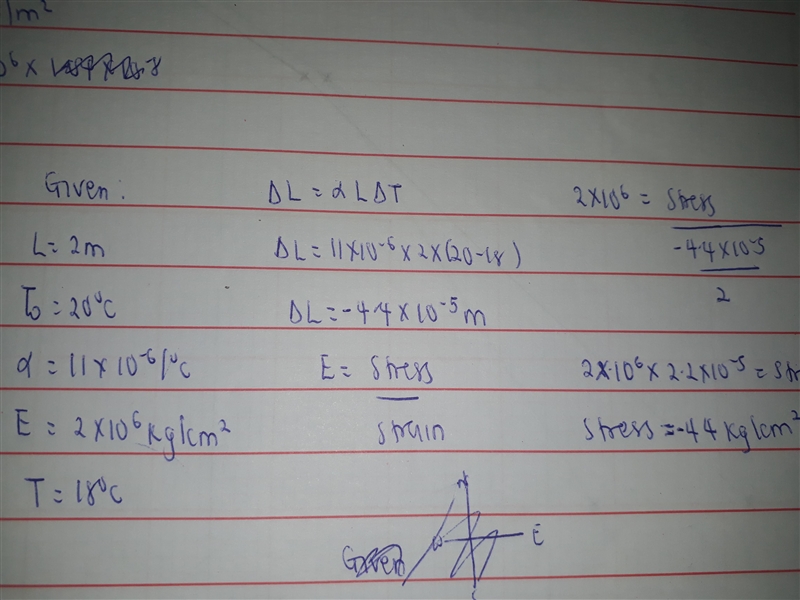 /m²
Given:
L = 2m
T₀ = 20°C
α = 11 × 10⁻⁶/°C
E = 2×10⁶ kg/cm²
T = 18°C
ΔL = αLΔT
ΔL = 11×10⁻⁶ × 2 × (20-18)
ΔL = -4.4 × 10⁻⁵ m
E = Stress
Strain
2×10⁶ = Stress
-4.4 × 10⁻⁵
2
2×10⁶ × 2.2×10⁻⁵ =
Stress = -44 kg/cm²
N
W E